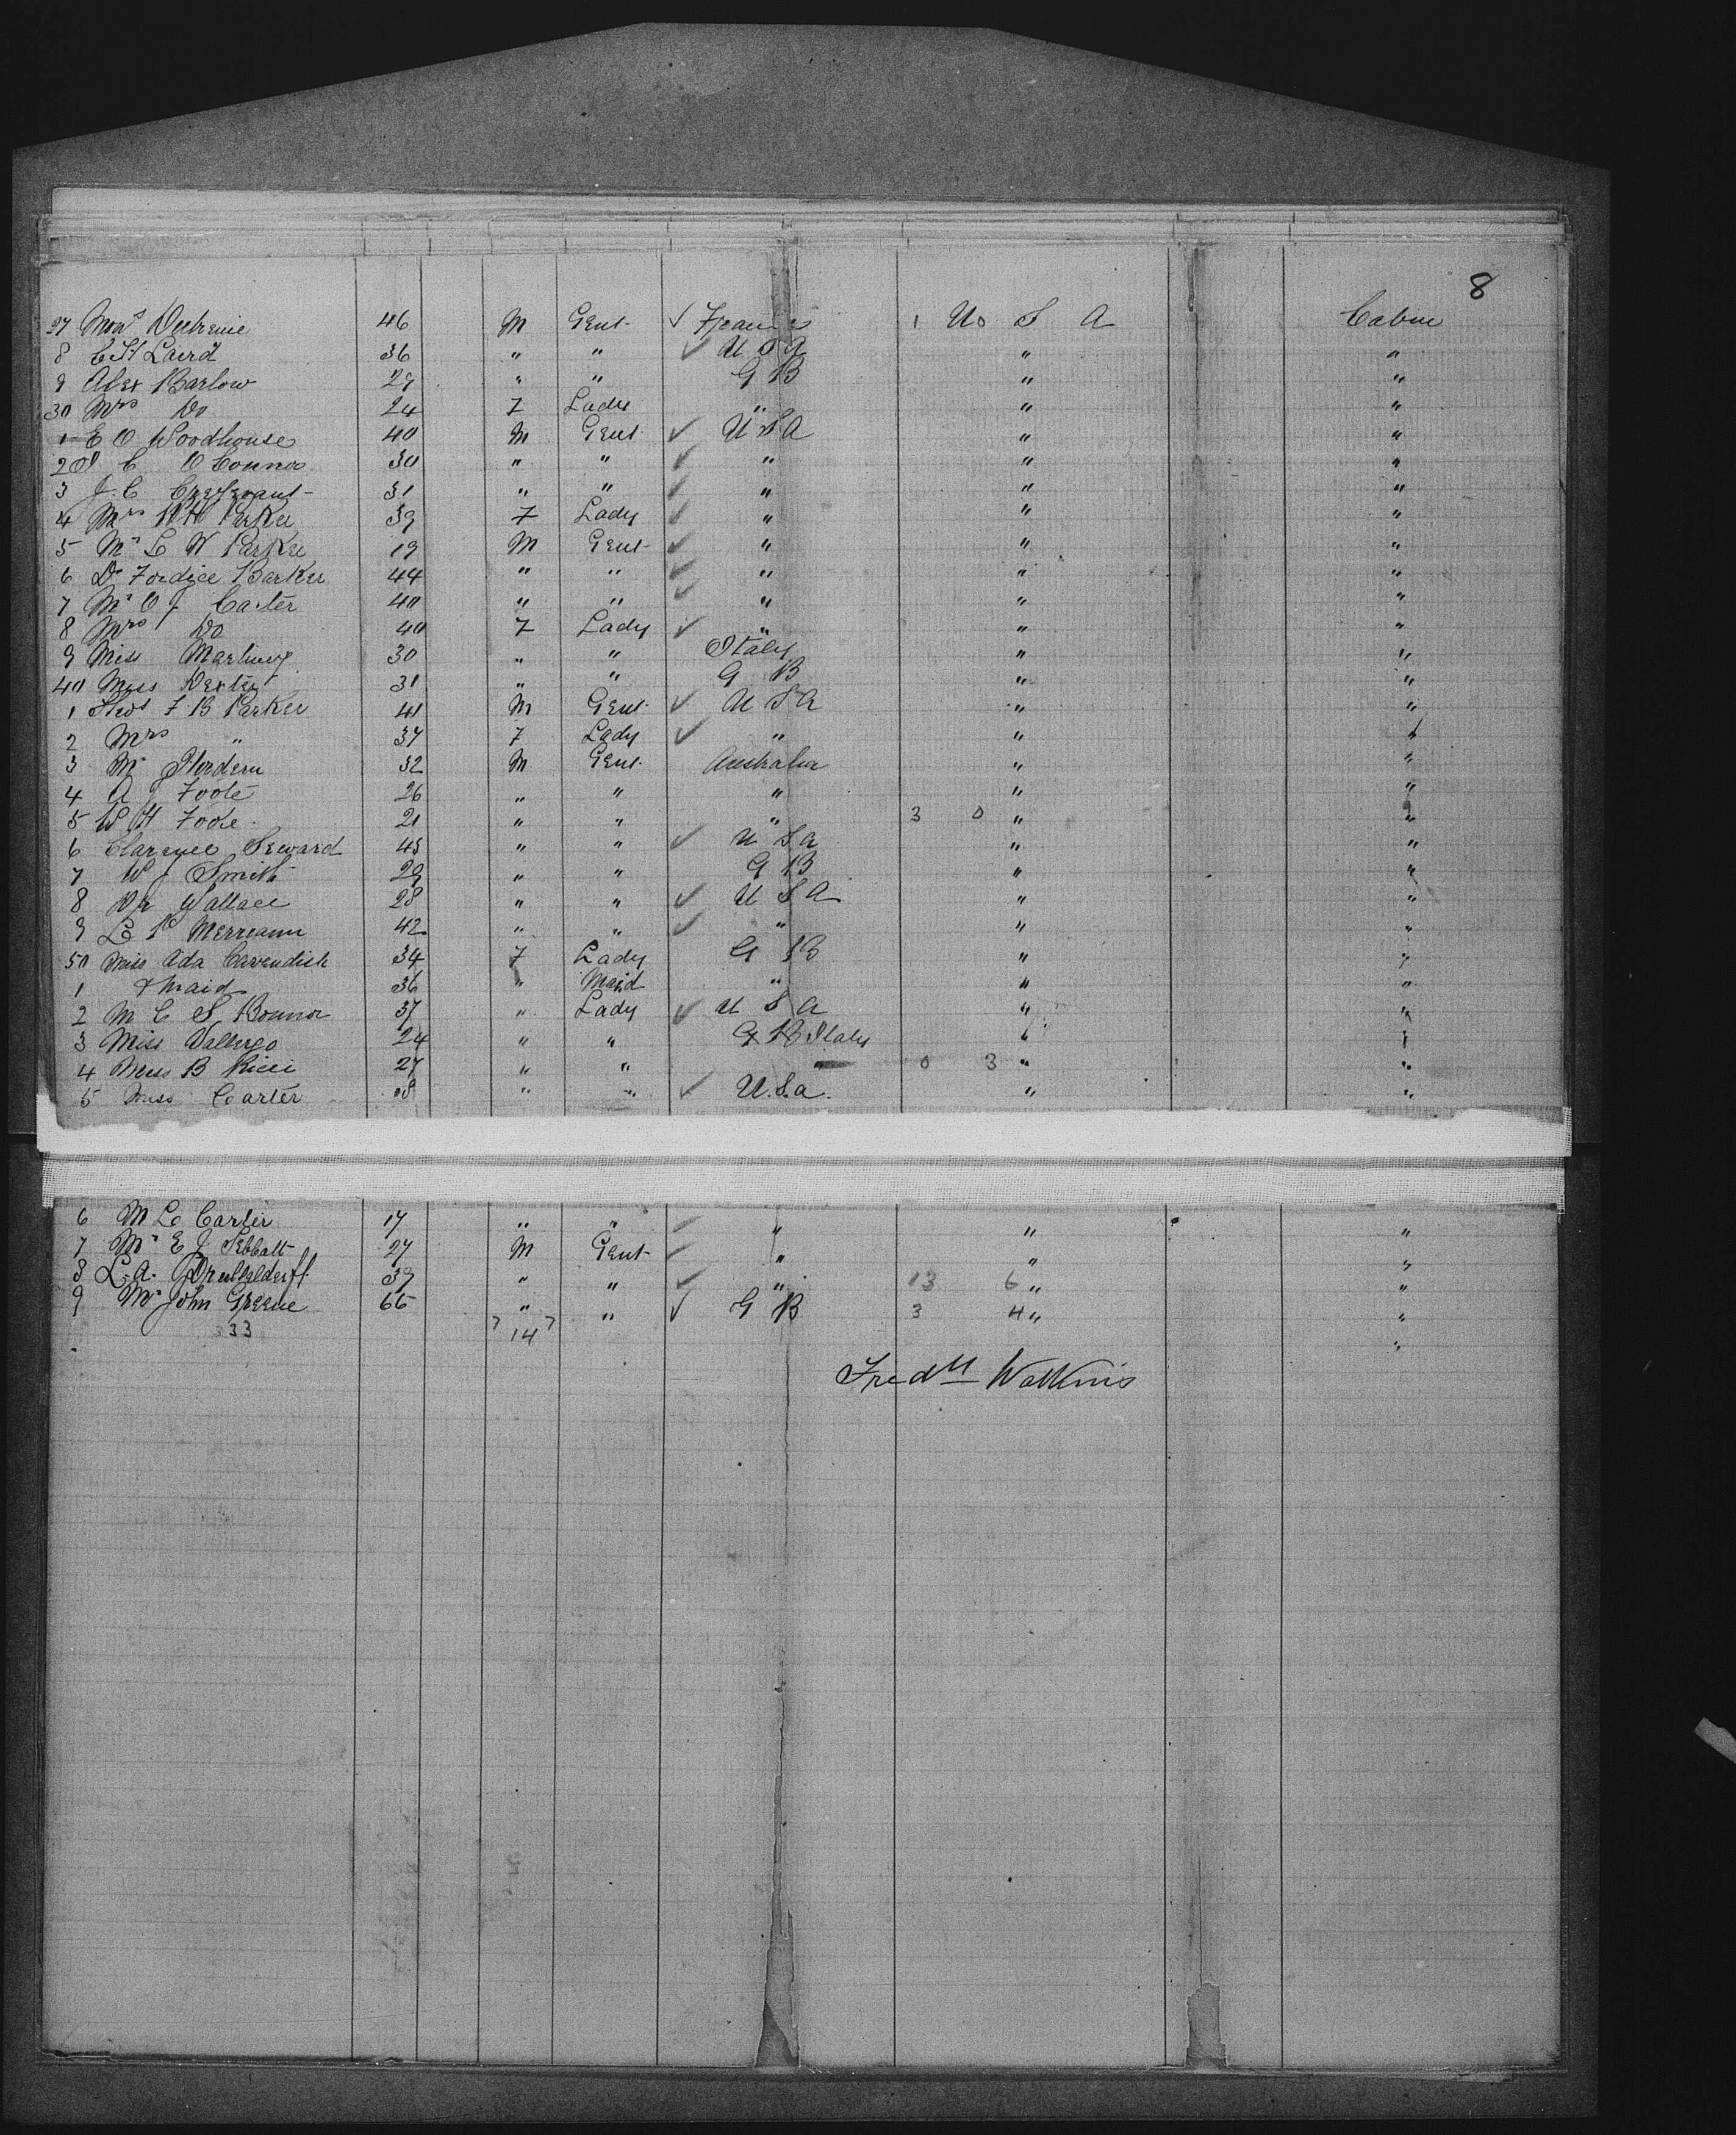 8
27 Mons 46 M Gent ✓ France 1 U S A Cabin
8 C H Laird 36 " " ✓ U S A " "
9 Alex Barlow 29 " " G B " "
30 Mrs Do 24 F Lady " " "
1 E O Woodhouse 40 M Gent ✓ U S A " "
2 C O Connor 30 " " ✓ " " "
3 J. C. 31 " " ✓ " " "
4 Mrs W H Parker 39 F Lady ✓ " " "
5 Mr C W Parker 19 M Gent ✓ " " "
6 Dr Fordice Barker 44 " " ✓ " " "
7 Mr O J Carter 40 " " ✓ " " "
8 Mrs Do 40 F Lady ✓ " " "
9 Miss Marling 30 " " Italy " "
40 Miss Dexter 31 " " G B " "
1 F B Parker 41 M Gent ✓ U S A " "
2 Mrs " 37 F Lady ✓ " " "
3 Mr Hordern 32 M Gent Australia " "
4 A J Foote 26 " " " " "
5 W H Foote 21 " " " 3 0 " "
6 Clarence Seward 45 " " ✓ U S A " "
7 W J Smith 29 " " G B " "
8 Dr Wallace 28 " " ✓ U S A " "
9 L P Merreann 42 " " ✓ " " "
50 Miss Ada Cavendish 34 F Lady G B " "
1 & Maid 36 " Maid " " "
2 M C S Bonnor 37 " Lady ✓ U S A " "
3 Miss Vallergo 24 " " G B Italy " "
4 Miss B Ricci 27 " " 0 3 " "
5 Miss Carter 18 " " ✓ U.S.a. " "
6 M L Carter 17 " " ✓ " " "
7 Mr E J Sebbalt 27 M Gent ✓ " " "
8 L. A. 39 " " ✓ " 13 6 " "
9 Mr John Greene 66 " " ✓ G B 3 4 " "
33 14 "
Fredk Watkins